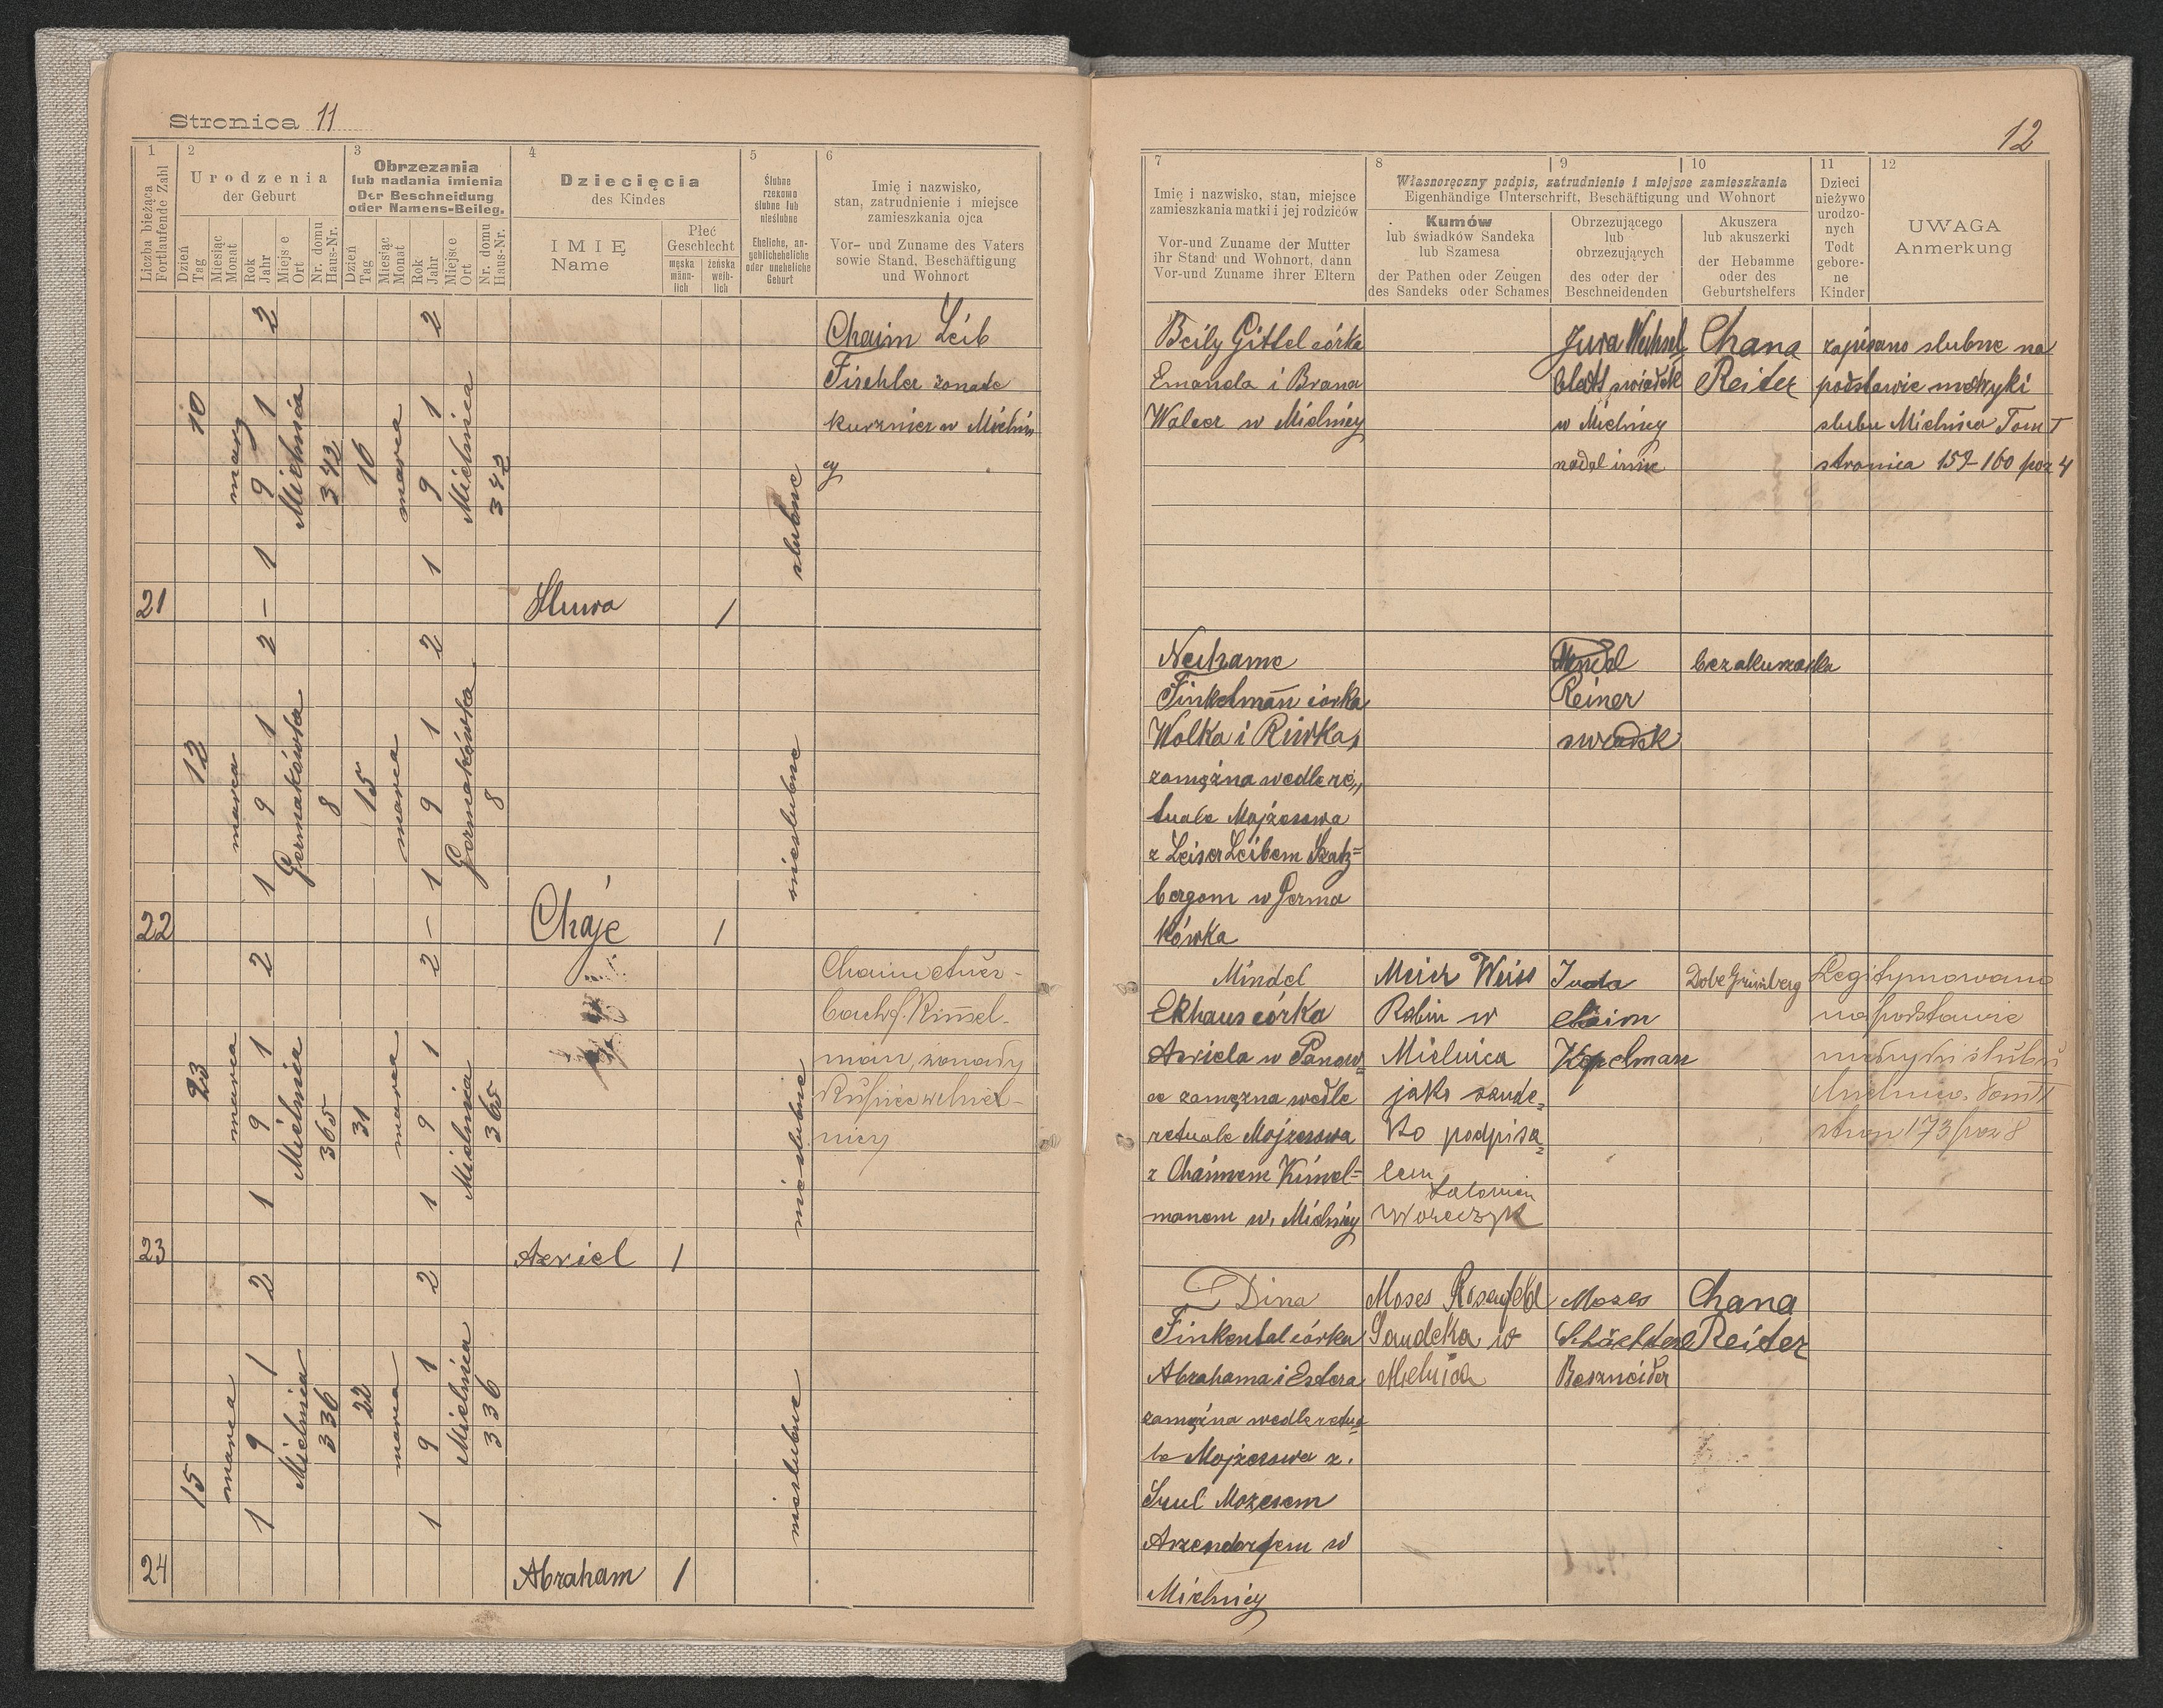 Stronica 11
1
Liczba bieżąca
Fortlaufende Zahl
2
Urodzenia
der Geburt
Dzień
Tag
Miesiąc
Monat
Rok
Jahr
Miejsce
Ort
Nr. domu
Haus-Nr.
3
Obrzezania
lub nadania imienia
Der Beschneidung
oder Namens-Beileg.
Dzień
Tag
Miesiąc
Monat
Rok
Jahr
Miejsce
Ort
Nr. domu
Haus-Nr.
4
Dziecięcia
des Kindes
IMIĘ
Name
Płeć
Geschlecht
męska
männ-
lich
żeńska
weib-
lich
5
Ślubne
rzekomo
ślubne lub
nieślubne
Eheliche, an-
geblicheheliche
oder uneheliche
Geburt
6
Imię i nazwisko,
stan, zatrudnienie i miejsce
zamieszkania ojca
Vor- und Zuname des Vaters
sowie Stand, Beschäftigung
und Wohnort
21
10
marca
1912
Mielnica
342
16
marca
1912
Mielnica
342
1
slubne
Chaim Leib
Fischler zonate
kusznier w Mielni
cy
22
12
marca
1912
Germakówka
8
15
marca
1912
Germakówka
8
Chaje
1
nieslubne
23
23
marca
1912
Mielnica
365
31
marca
1912
Mielnica
365
Azriel
1
nieslubne
24
15
marca
1912
Mielnica
336
22
marca
1912
Mielnica
336
Abraham
1
nieslubne
12
7
Imię i nazwisko, stan, miejsce
zamieszkania matki i jej rodziców
Vor-und Zuname der Mutter
ihr Stand und Wohnort, dann
Vor-und Zuname ihrer Eltern
8
9
10
Własnoręczny podpis, zatrudnienie i miejsce zamieszkania
Eigenhändige Unterschrift, Beschäftigung und Wohnort
Kumów
lub świadków Sandeka
lub Szamesa
der Pathen oder Zeugen
des Sandeks oder Schames
Obrzezującego
lub
obrzezujących
des oder der
Beschneidenden
Akuszera
lub akuszerki
der Hebamme
oder des
Geburtshelfers
11
Dzieci
nieżywo
urodzo-
nych
Todt
gebore-
ne
Kinder
12
UWAGA
Anmerkung
Beily Gittel córka
Emanela i Brana
Walcer w Mielnicy
w Mielnicy
nadał imie
Chana
Reiter
zapisano slubne na
podstawie metryki
slubu Mielnica Tom I
stronica 159-160 poz 4
Nechame
Finkelman córka
Wolka i Riwka,
zamężna wedle re,,
tuale Mojżeszwa
z Leiser Leibem Szatz=
bergem w Germa
kówka
Mendel
Reiner
swiadek
bez akuszerka
Mindel
Ekhaus córka
Azriela w Panow=
ce zamezna wedle
retuale Mojzeszwa
z Chaimem Kimel=
manem w. Mielnicy
Meier Weiss
Rabin w
Mielnica
jako sande=
ko podpisa=
lem
Salomon
Juda
Chaim
Kopelman
Dobe Grünberg
Legitymowano
na podstawie
metryki slubu
Mielnica Tom I
stron 173 poz 8
Dina
Finkental córka
Abrahama i Estera
zamężna wedle retua
le Mojżeszwa z.
Suul Mozesem
Arzendorfem w
Mielnicy
Moses Rosenfeld
Sandeka w
Mielnica
Mozes
Schächter
Beszneider
Chana
Reiter